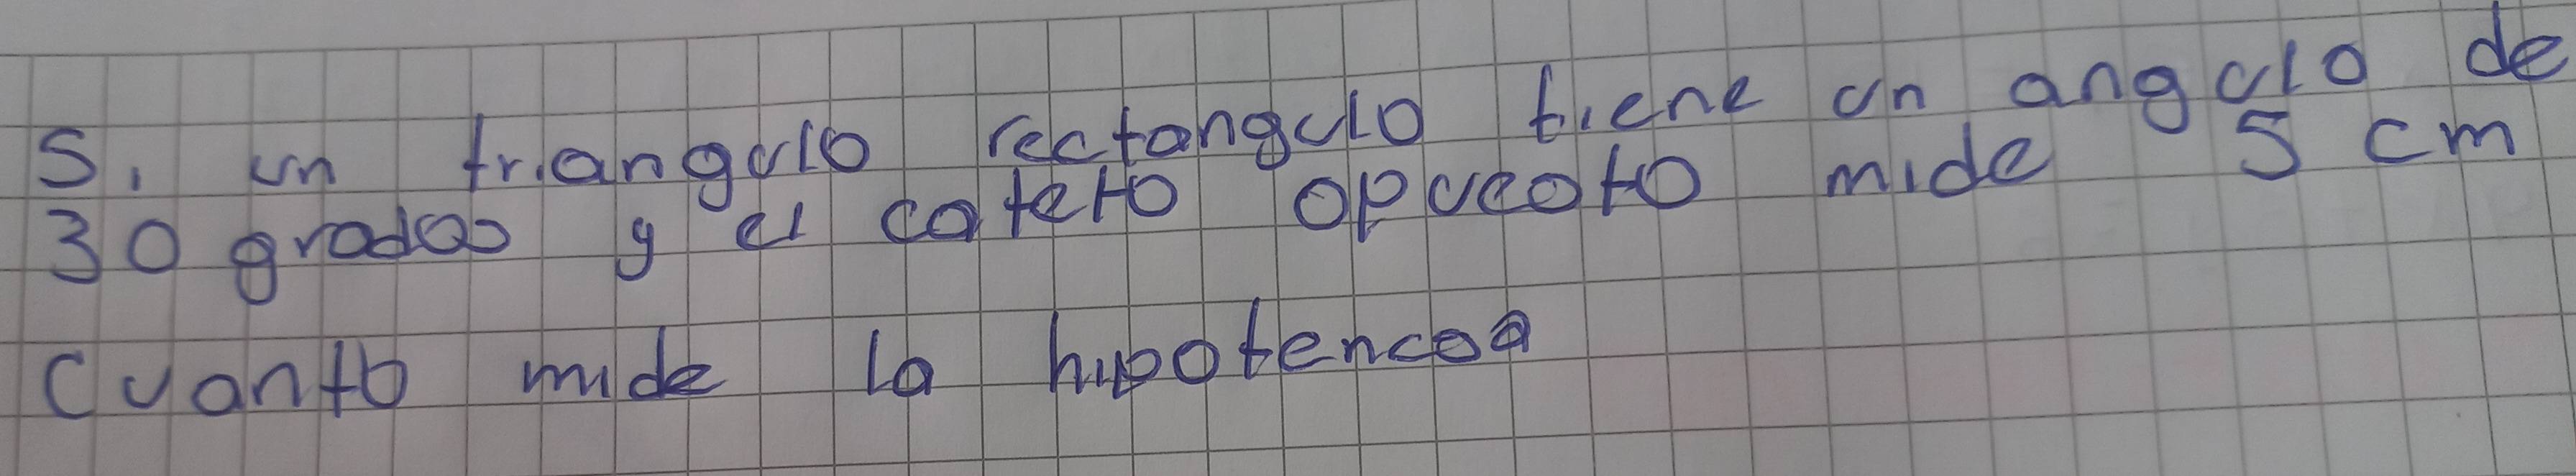 Si un triangulo rectangulo tiene un angulo de
30 grados y el cateto opuesto mide 5 cm
Cuanto mide la hipotencsa